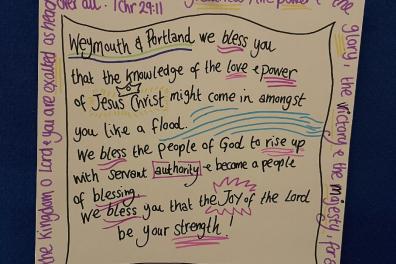 over all. 1 Chr 29:11
the glory, the victory & the majesty, for
the kingdom, O Lord & you are exalted as head
Weymouth & Portland we bless you
that the knowledge of the love & power
of Jesus Christ might come in amongst
you like a flood.
We bless the people of God to rise up
with servant authority & become a people
of blessing.
We bless you that the Joy of the Lord
be your strength!